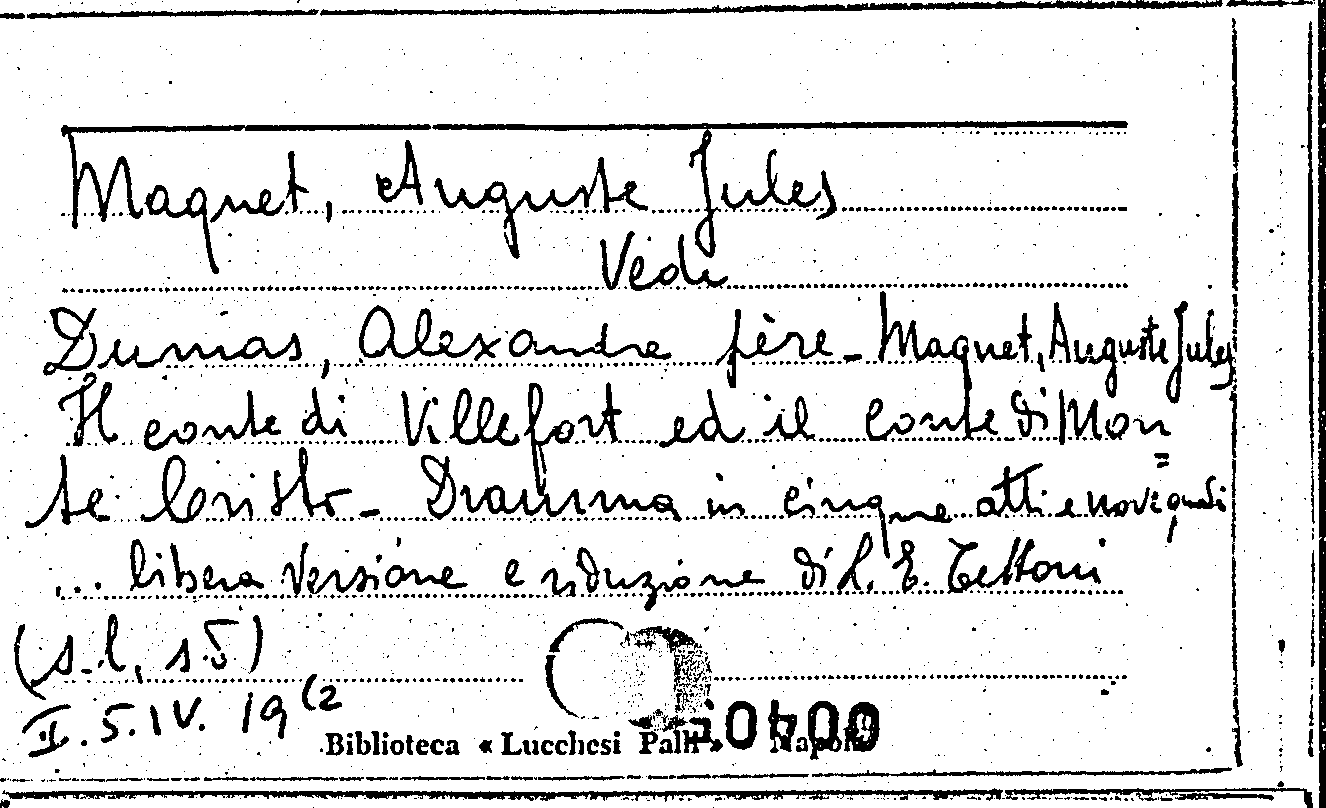 Maquet, Auguste Jules
Vedi
Dumas, Alexandre père - Maquet, Auguste Jules
Il conte di Villefort ed il conte di Mon=
te Cristo - Dramma in cinque atti e nove quadri
... libera versione e riduzione di L. E. Tettoni
(s.l., s.d)
I. 5. IV. 19 (2
Biblioteca « Lucchesi Palli » Napoli
00400